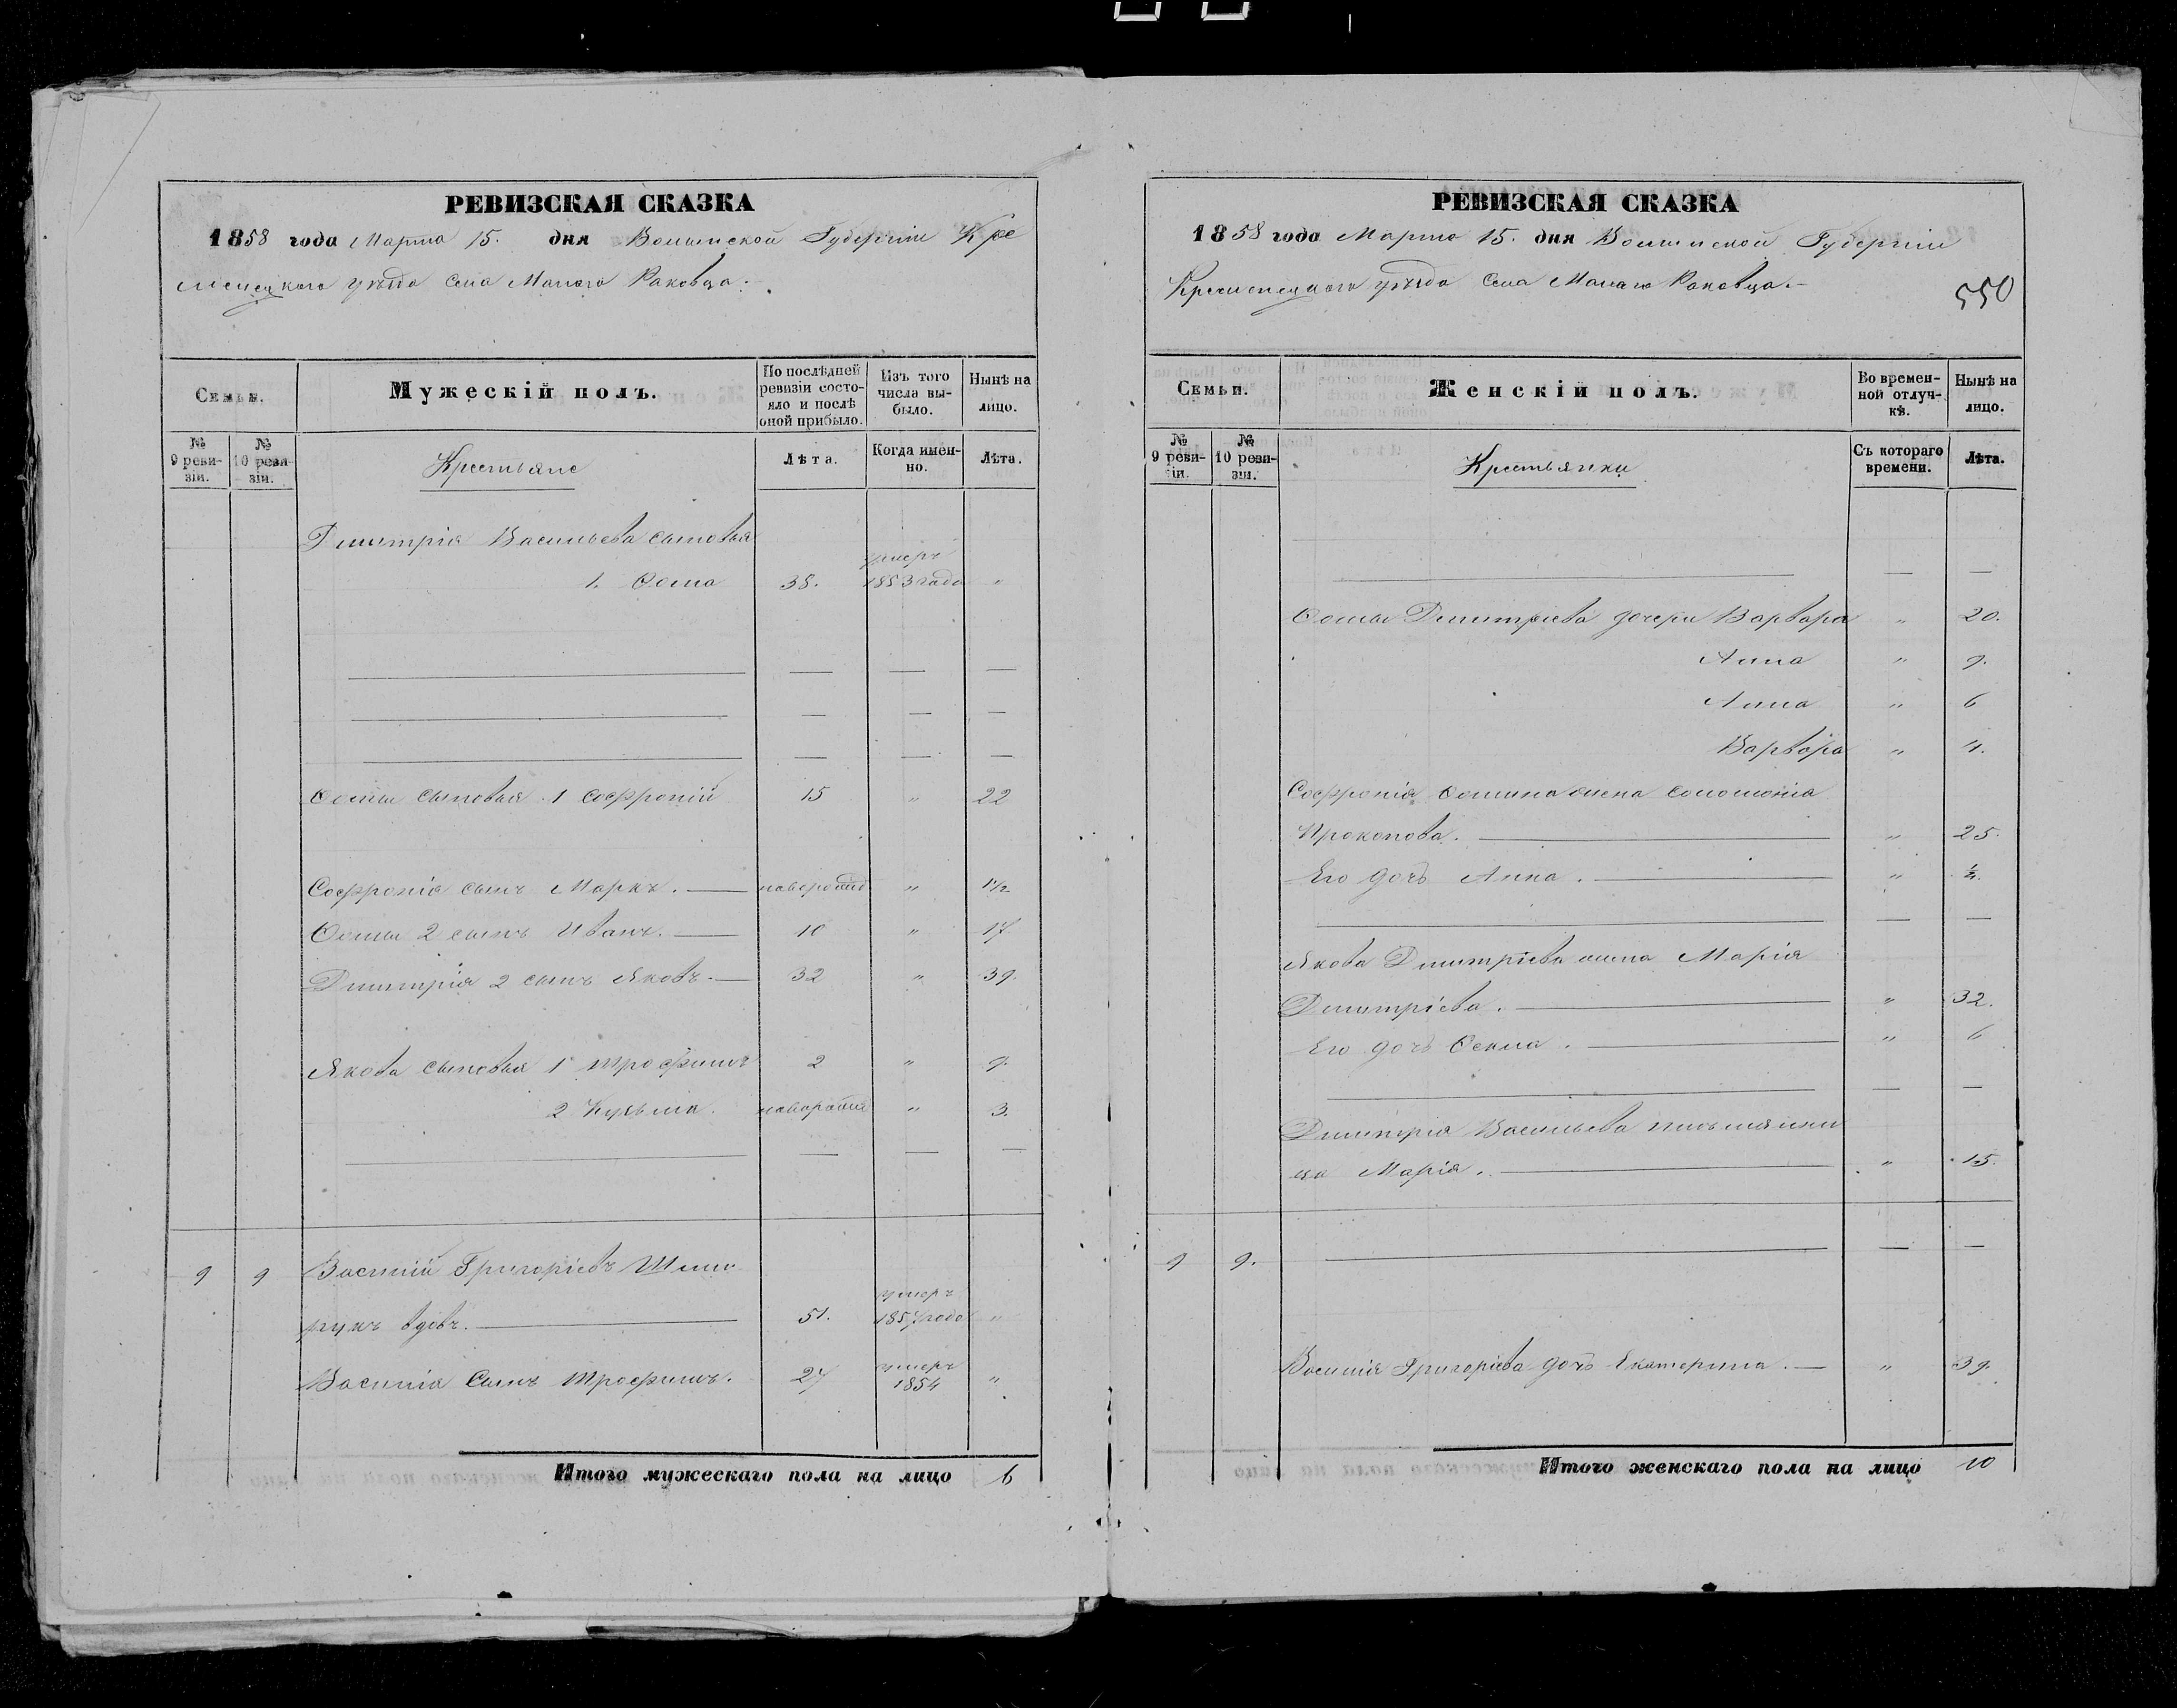 РЕВИЗСКАЯ СКАЗКА
1858 года Марта 15. дня Волынской Губерніи Кре
менецкаго уѣзда Села Малаго Раковца.
Семьи.
Мужескій полъ.
По послѣдней ревизіи состояло и послѣ оной прибыло.
Изъ того числа выбыло.
Нынѣ на лицо.
№ 9 ревизіи.
№ 10 ревизіи.
Крестьяне
Лѣта.
Когда именно.
Лѣта.
Дмитрія Васильева сыновья
1. Ѳома 38. умеръ 1853 года "
— — —
— — —
— — —
Ѳомы сыновья 1 Софроній 15 " 22
Софронія сынъ Маркъ. — новорожд " 1½
Ѳомы 2 сынъ Иванъ. — 10 " 17
Дмитрія 2 сынъ Яковъ — 32 " 39.
Якова сыновья 1 Трофимъ 2 " 9.
2 Кузьма. новорожд " 3.
— — —
9 9 Василій Григоріевъ
вдовъ. — 51. умеръ 1857 года "
Василія Сынъ Трофимъ. 27 умеръ 1854 "
Итого мужескаго пола на лицо 6
РЕВИЗСКАЯ СКАЗКА
1858 года Марта 15. дня Волынской Губерніи
Кременецкаго уѣзда Села Малаго Раковца.—
550
Семьи.
Женскій полъ.
Во временной отлучкѣ.
Нынѣ на лицо.
№ 9 ревизіи.
№ 10 ревизіи.
Крестьянки
Съ котораго времени.
Лѣта.
— —
Ѳомы Дмитріева дочери Варвара " 20.
Анна " 9.
Анна " 6
Варвара " 4.
Софронія Ѳомина жена Соломонія
Прокопова. — " 25.
Его дочь Анна. — " ½.
— —
Якова Дмитріева жена Марія
Дмитріева. — " 32.
Его дочь — " 6
— —
Дмитрія Васильева племянни
ца Марія. — " 15.
9 9. — —
Василія Григоріева дочь Екатерина. — " 39.
Итого женскаго пола на лицо 10